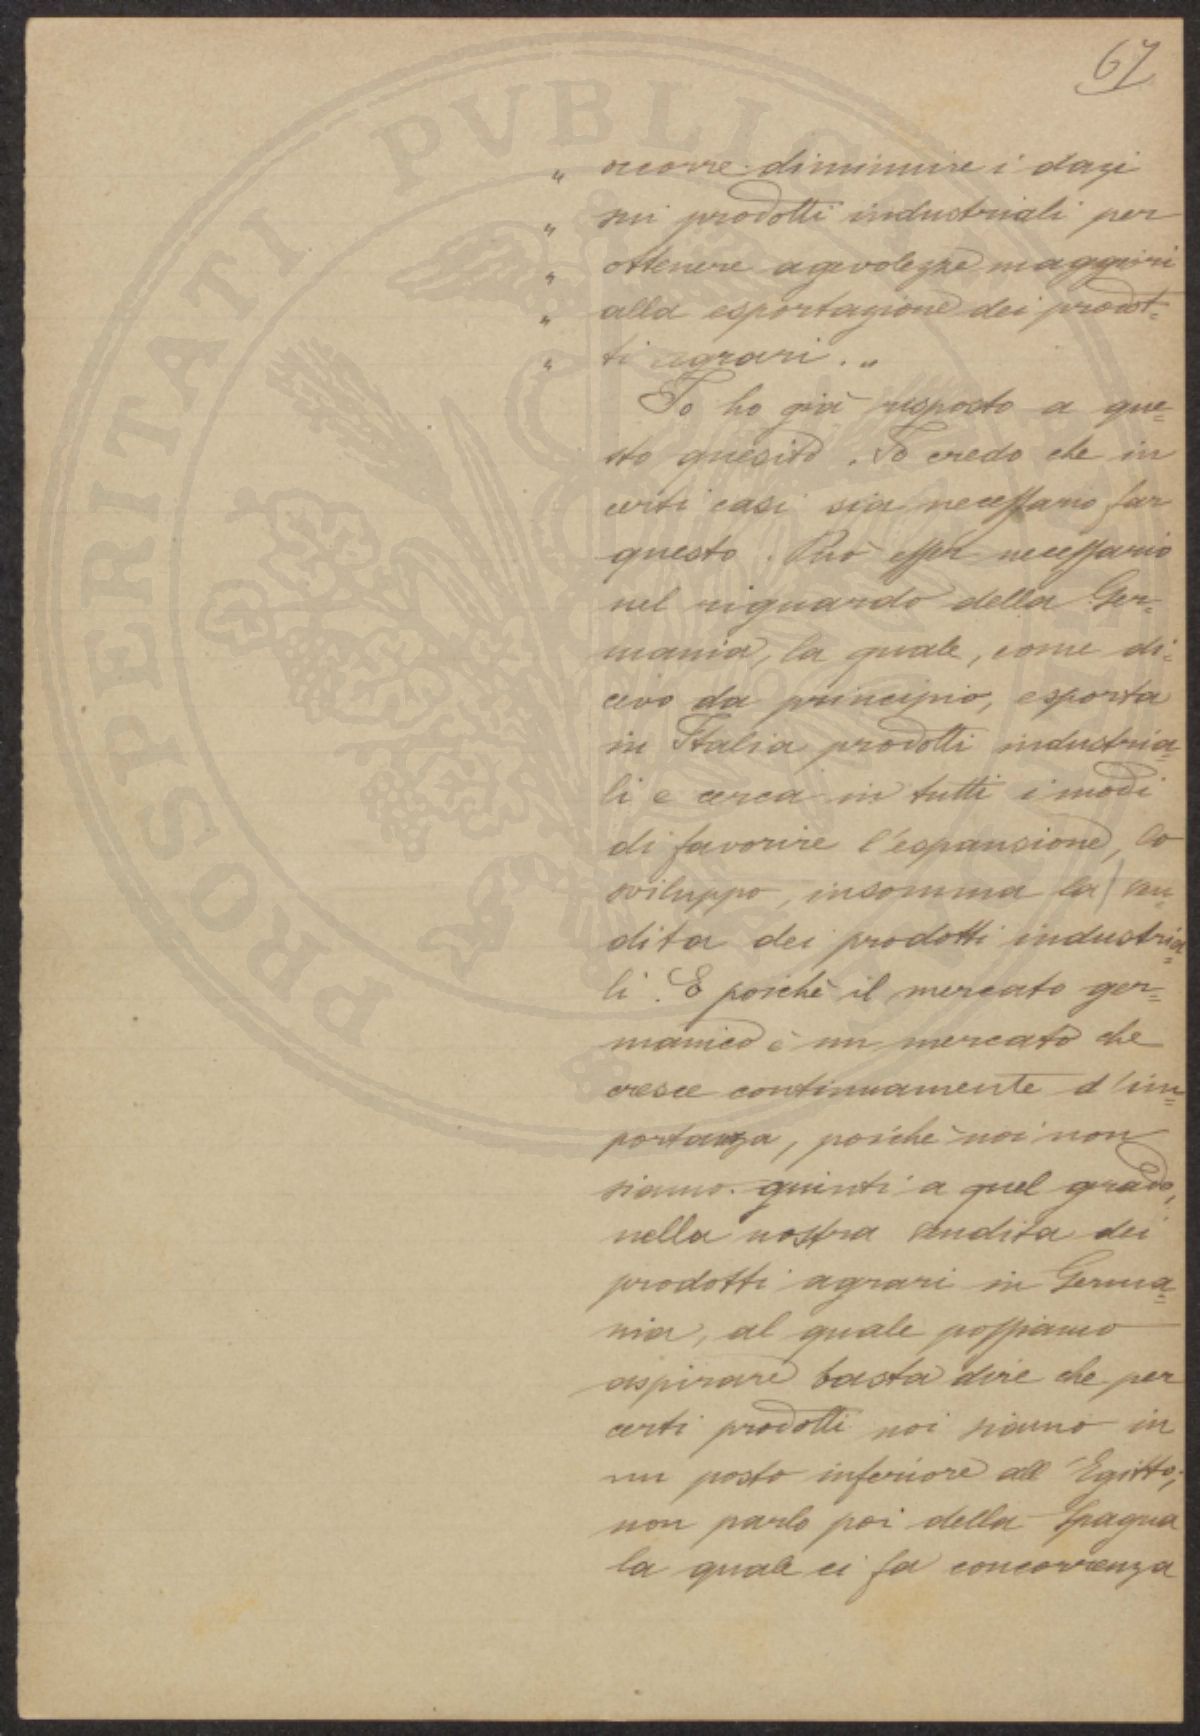 67
„ occorre diminuire i dazi
„ sui prodotti industriali per
„ ottenere agevolezze maggiori
„ alla esportazione dei prodot=
„ ti agrari. „
Io ho già risposto a que=
sto quesito. Io credo che in
certi casi sia necessario far
questo. Può esser necessario
nel riguardo della Ger=
mania, la quale, come di=
cevo da principio, esporta
in Italia prodotti industria=
li e cerca in tutti i modi
di favorire l'espansione, lo
sviluppo, insomma la ven=
dita dei prodotti industria=
li. E poichè il mercato ger=
manico è un mercato che
cresce continuamente d'im=
portanza, poichè noi non
siamo giunti a quel grado,
nella nostra vendita dei
prodotti agrari in Germa=
nia, al quale possiamo
aspirare basta dire che per
certi prodotti noi siamo in
un posto inferiore all'Egitto;
non parlo poi della Spagna
la quale ci fa concorrenza
PROSPERITATI PVBLICAE